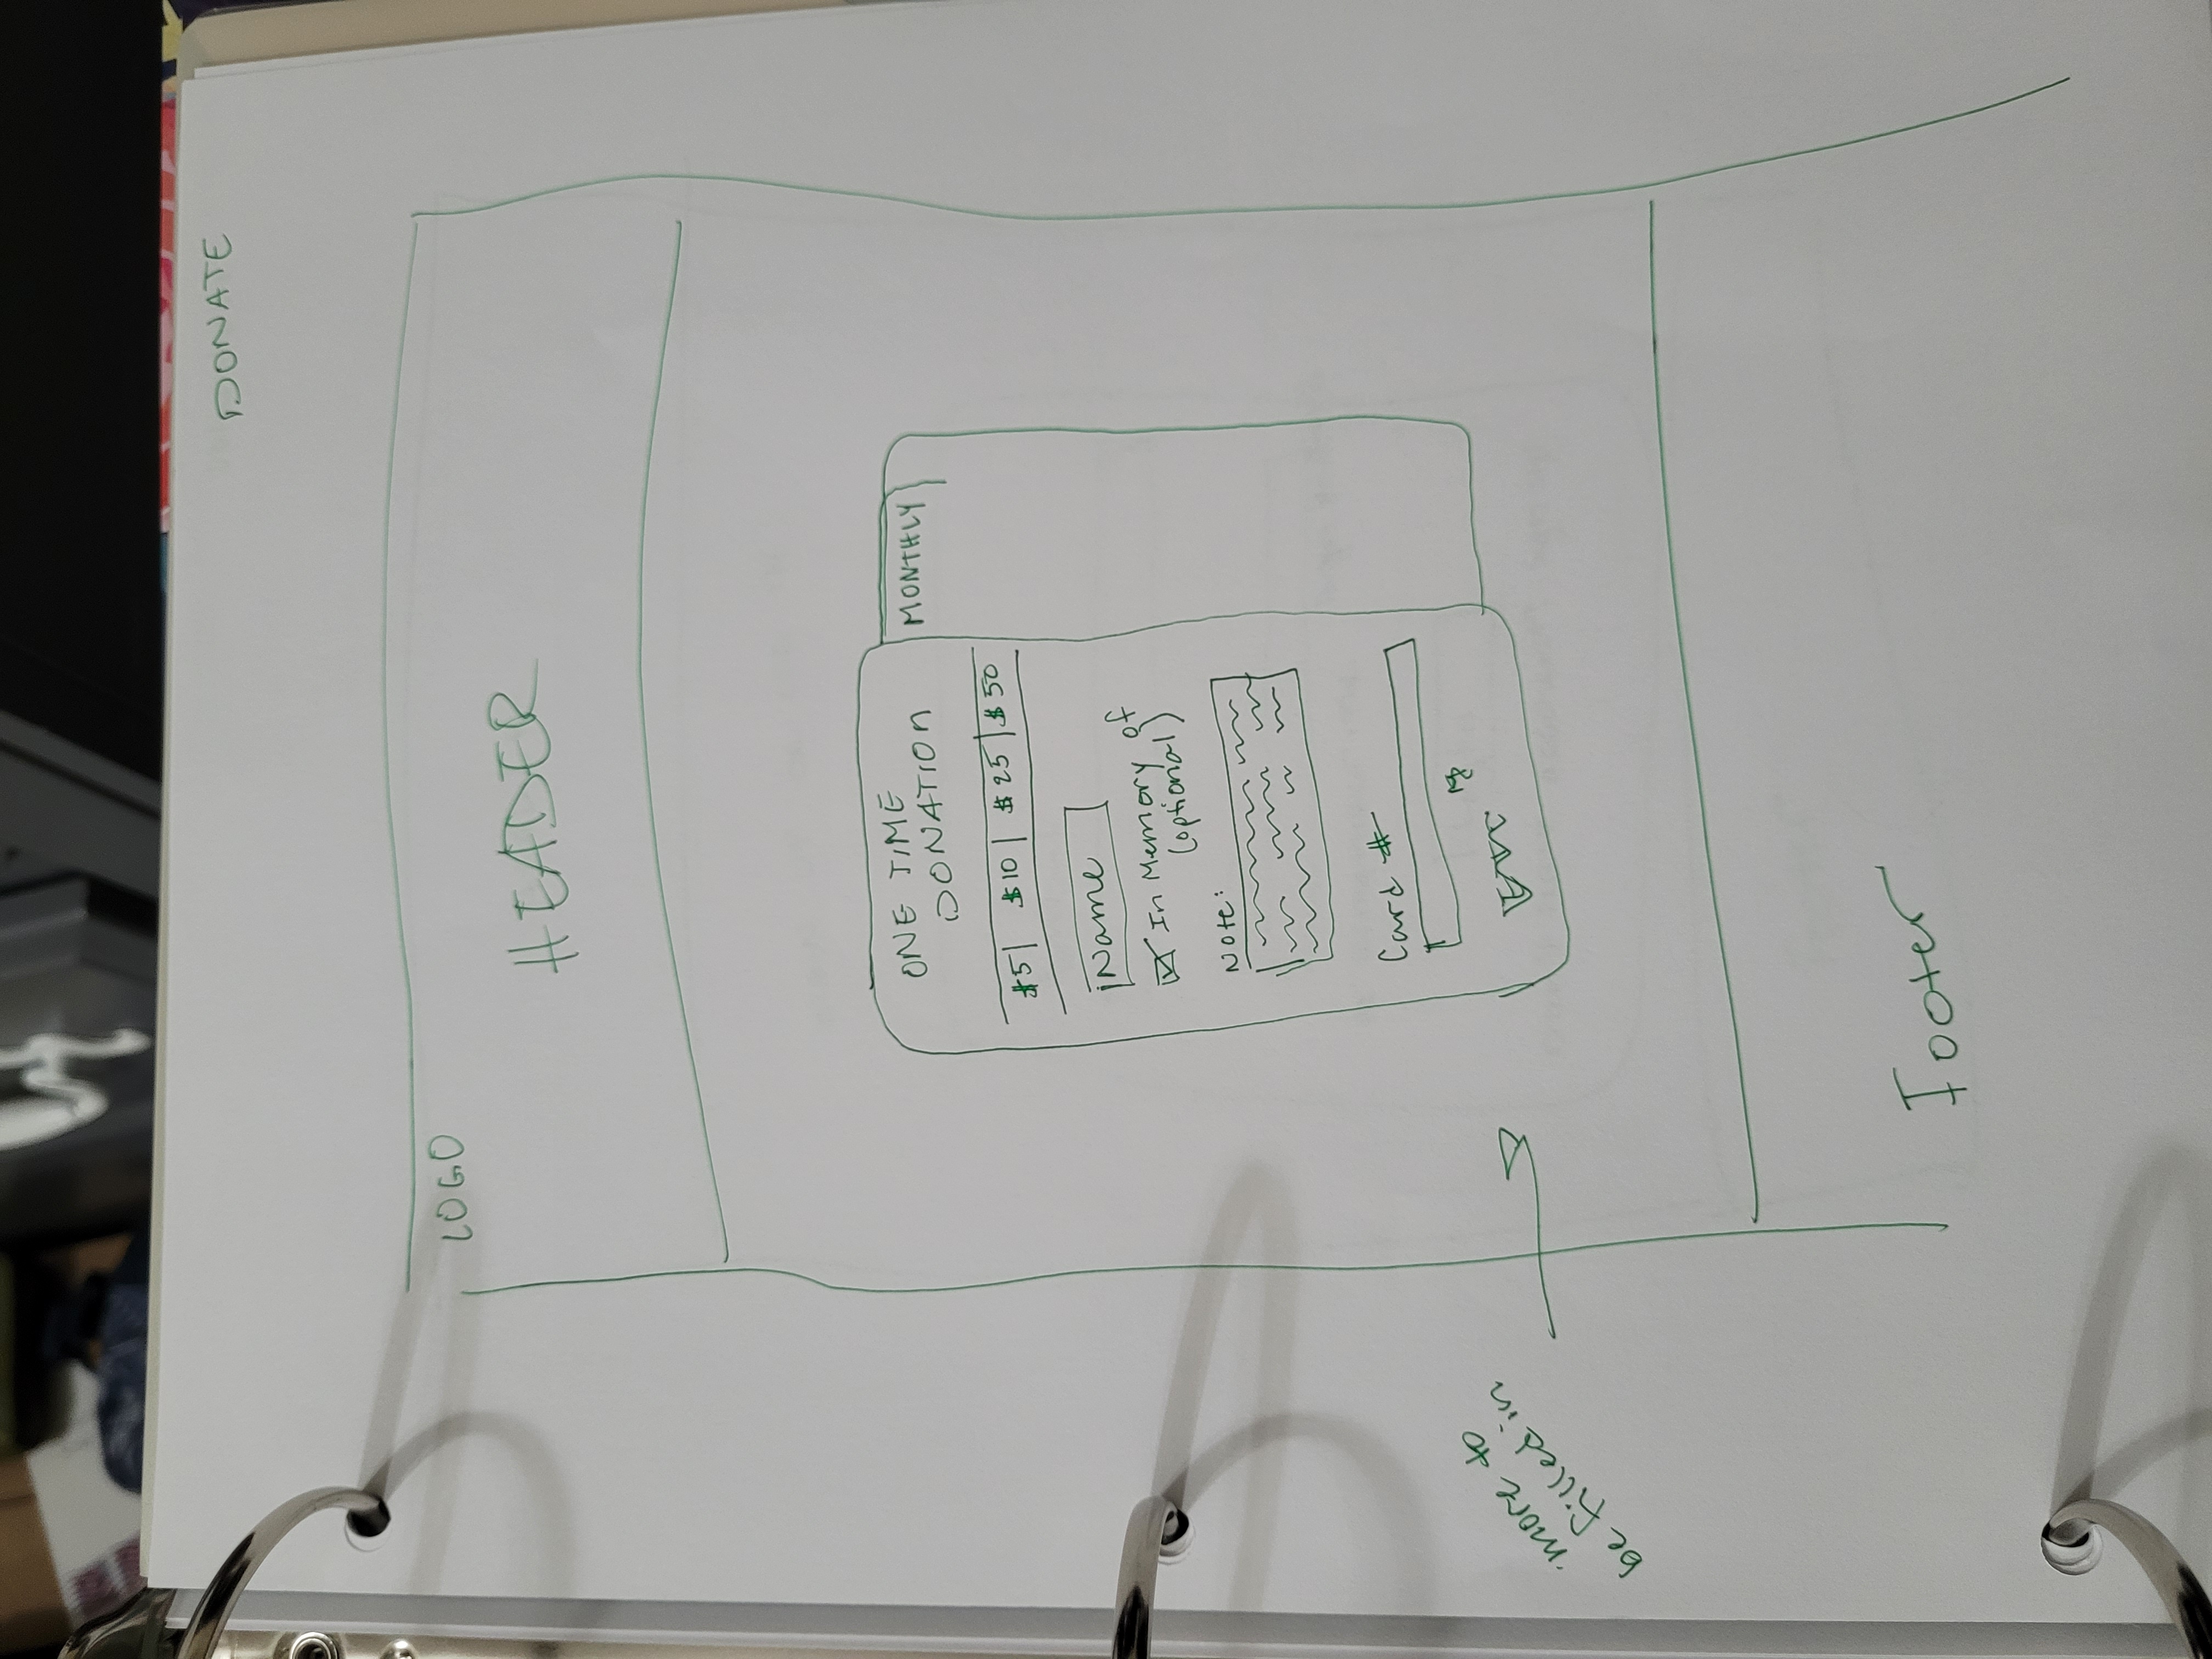 DONATE
LOGO
HEADER
ONE TIME
DONATION
MONTHLY
$5 | $10 | $25 | $50
Name
In Memory of
(optional)
Note:
Card #
more to
be filled in
Footer